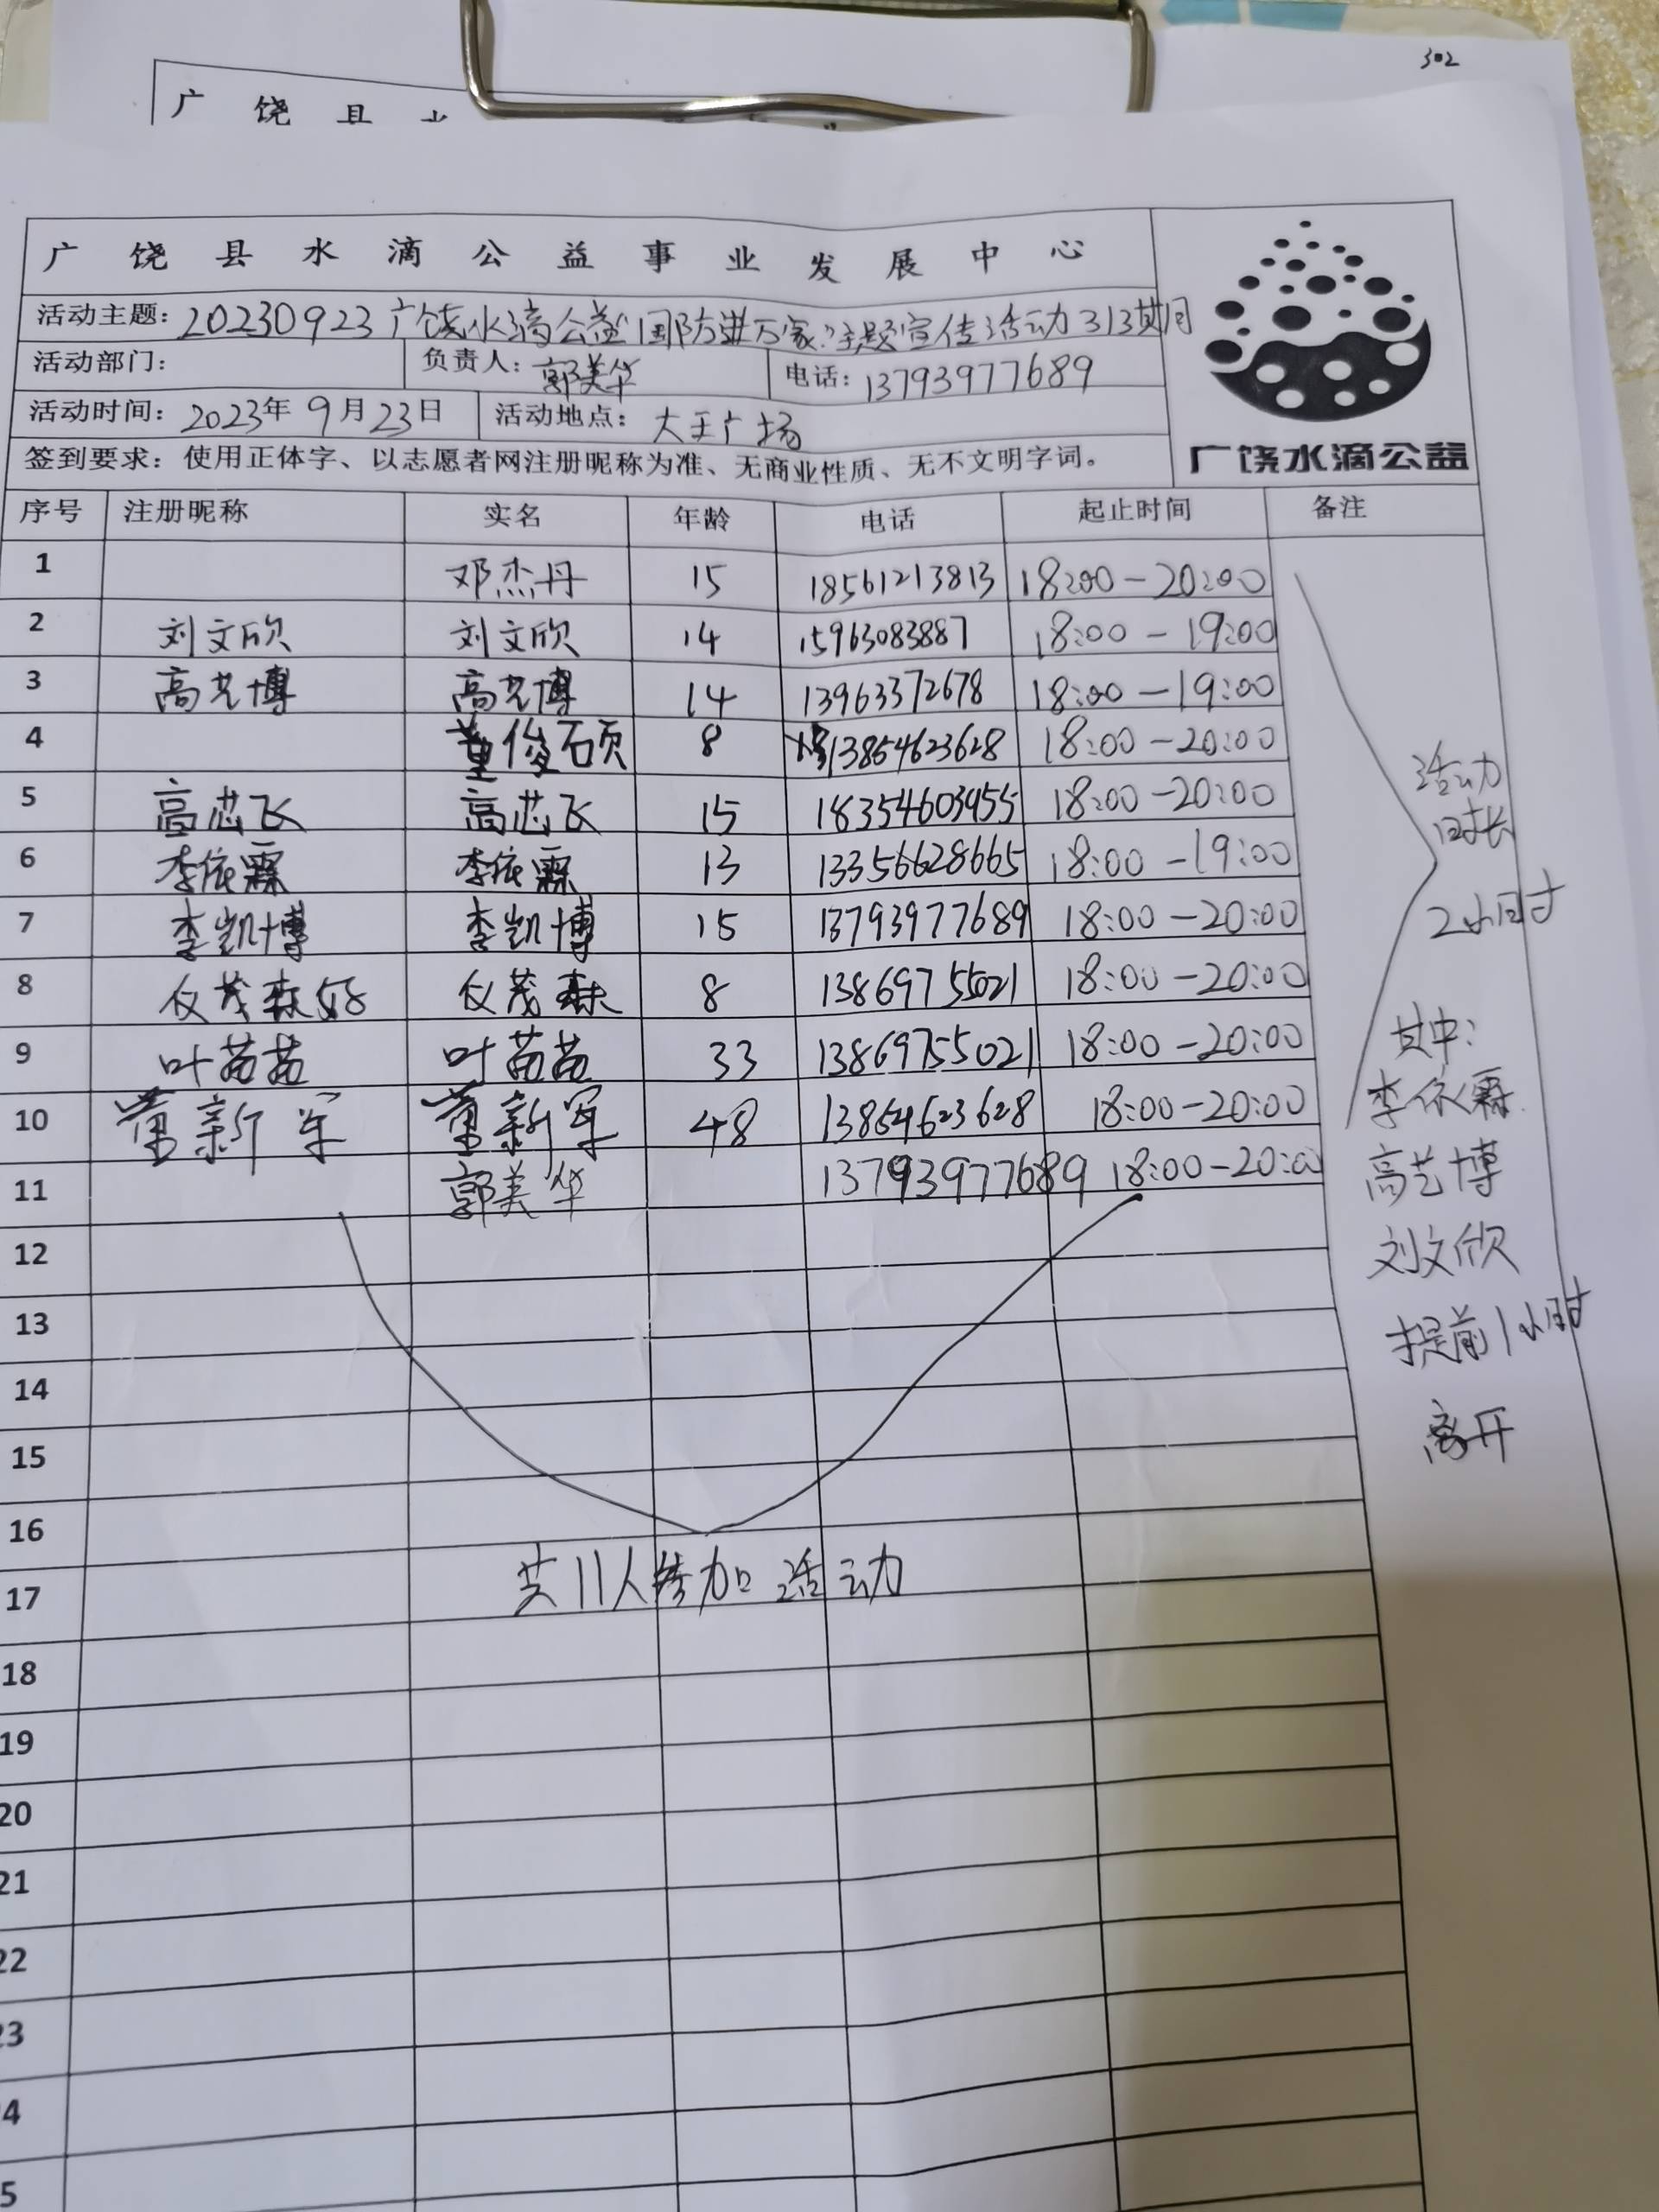 302
广 饶 县
广 饶 县 水 滴 公 益 事 业 发 展 中 心
活动主题：20230923广饶水滴公益"国防进万家"主题宣传活动313期间
活动部门： 负责人：郭美华 电话：13793977689
活动时间：2023年9月23日 活动地点：大王广场
签到要求：使用正体字、以志愿者网注册昵称为准、无商业性质、无不文明字词。
广饶水滴公益
序号 注册昵称 实名 年龄 电话 起止时间 备注
1 邓杰丹 15 18561213813 18:00-20:00
2 刘文欣 刘文欣 14 15963083887 18:00-19:00
3 高艺博 高艺博 14 13963372678 18:00-19:00
4 董俊硕 8 13854623628 18:00-20:00
5 高芯飞 高芯飞 15 18354603955 18:00-20:00
6 李依霖 李依霖 13 13356628665 18:00-19:00
7 李凯博 李凯博 15 13793977689 18:00-20:00
8 仪茂森妈 仪茂森 8 13869755021 18:00-20:00
9 叶苗苗 叶苗苗 33 13869755021 18:00-20:00
10 董新军 董新军 48 13854623628 18:00-20:00
11 郭美华 13793977689 18:00-20:00
活动
时长
2小时
其中：
李依霖
高艺博
刘文欣
提前1小时
离开
12
13
14
15
16
共11人参加活动
17
18
19
20
21
22
23
4
5